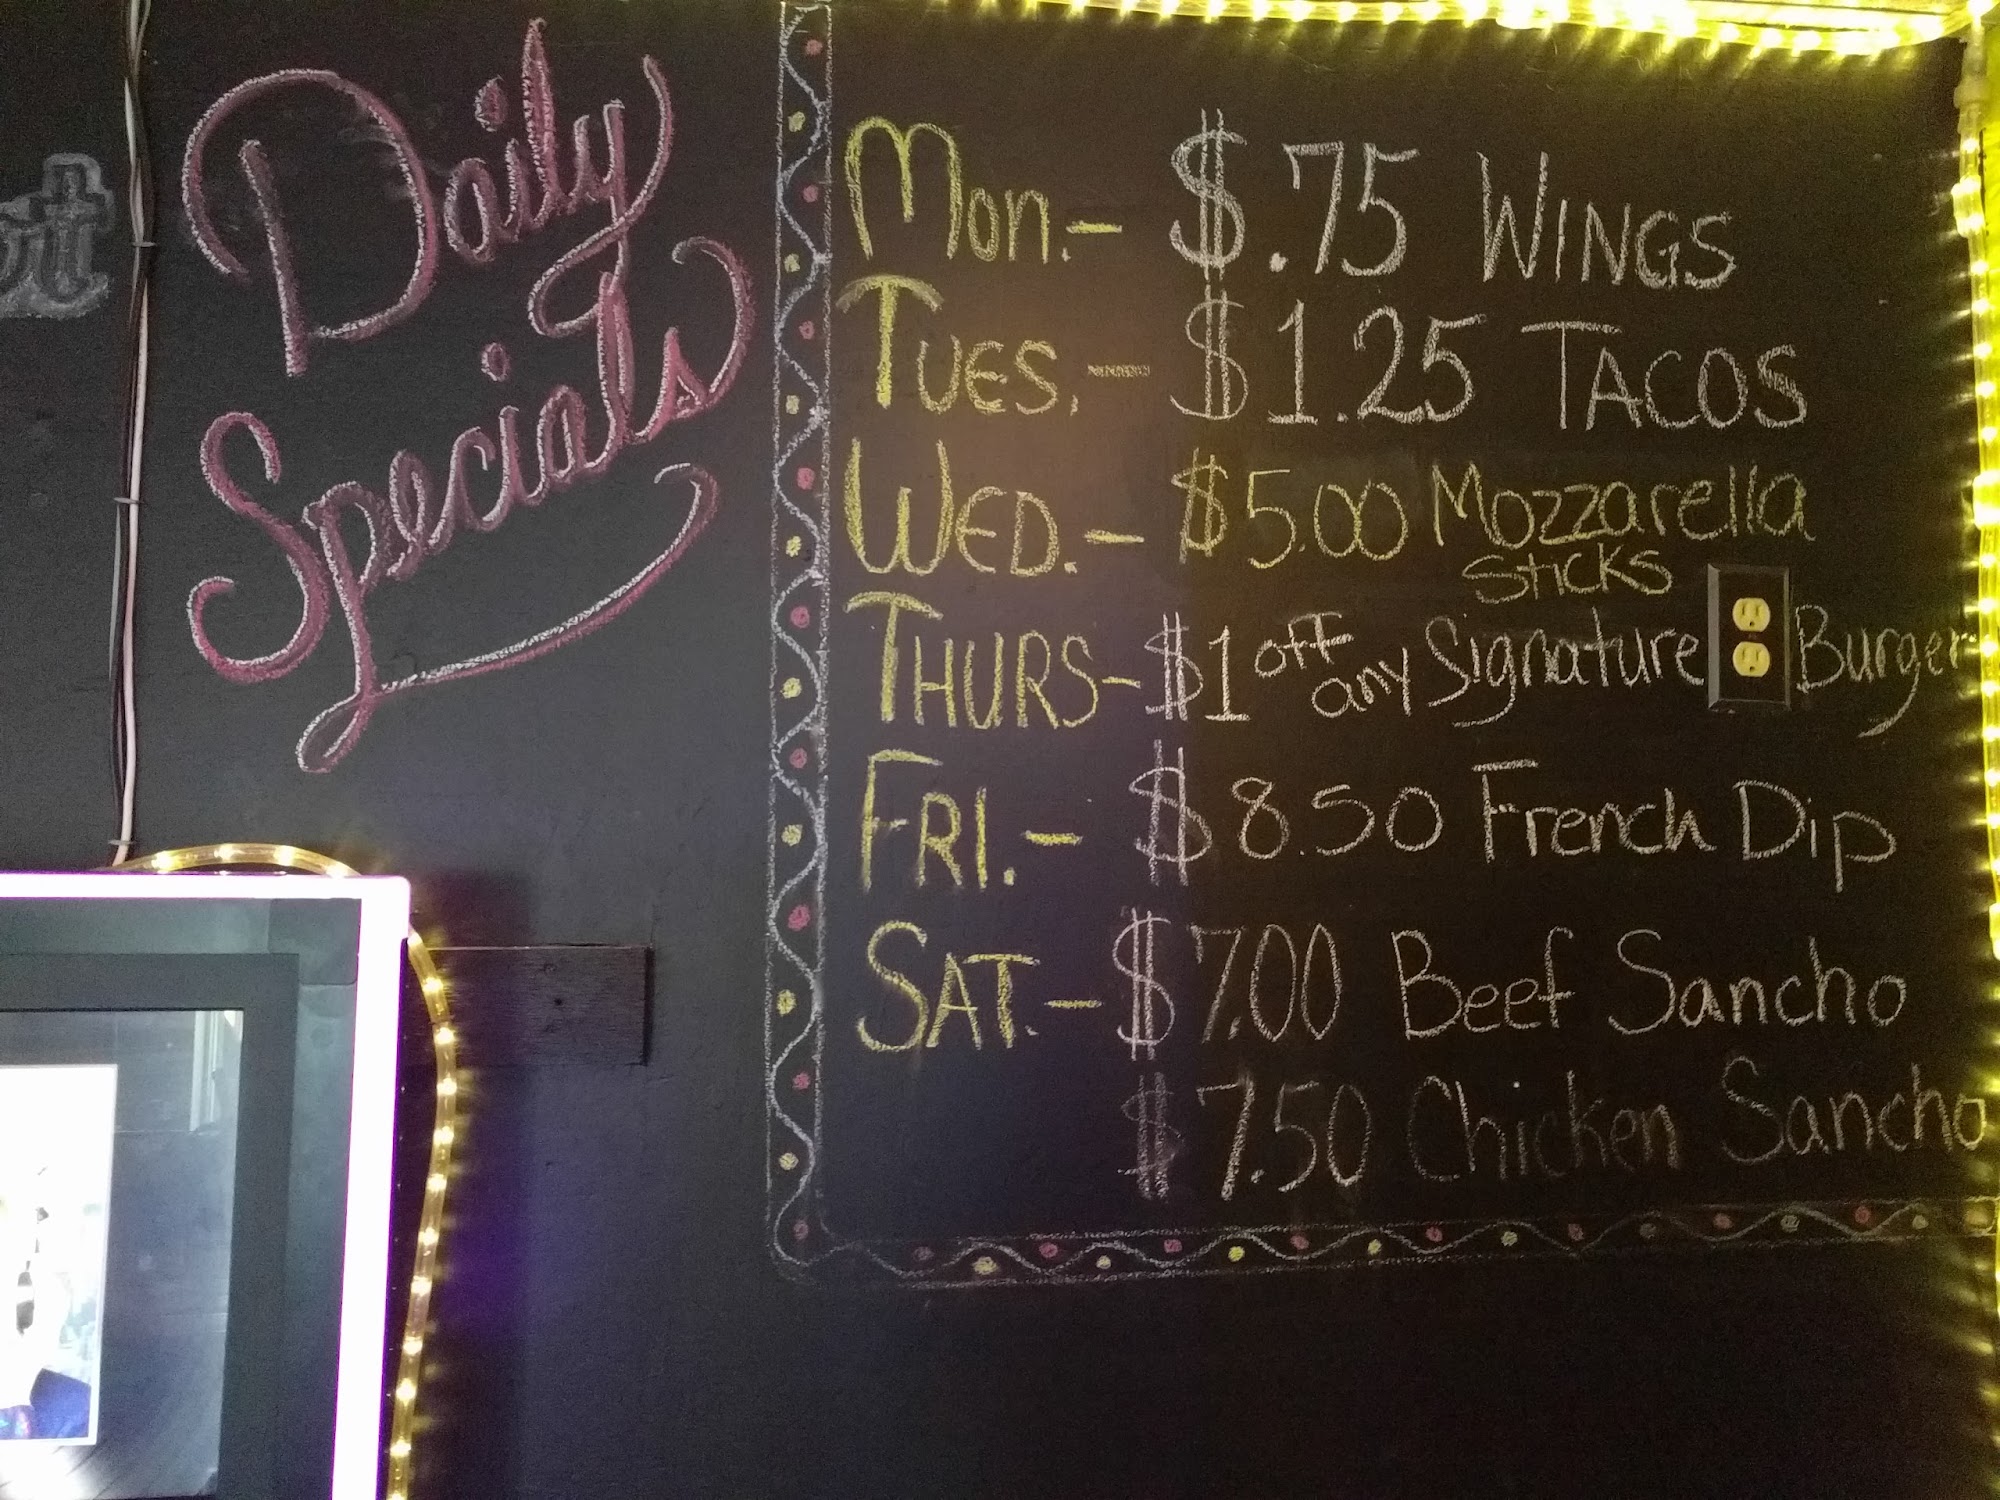 Daily
Specials
Mon.- $.75 WINGS
TUES.- $1.25 TACOS
WED.- $5.00 Mozzarella
sticks
THURS- $1 off any Signature Burger
FRI.- $8.50 French Dip
SAT.- $7.00 Beef Sancho
$7.50 Chicken Sancho